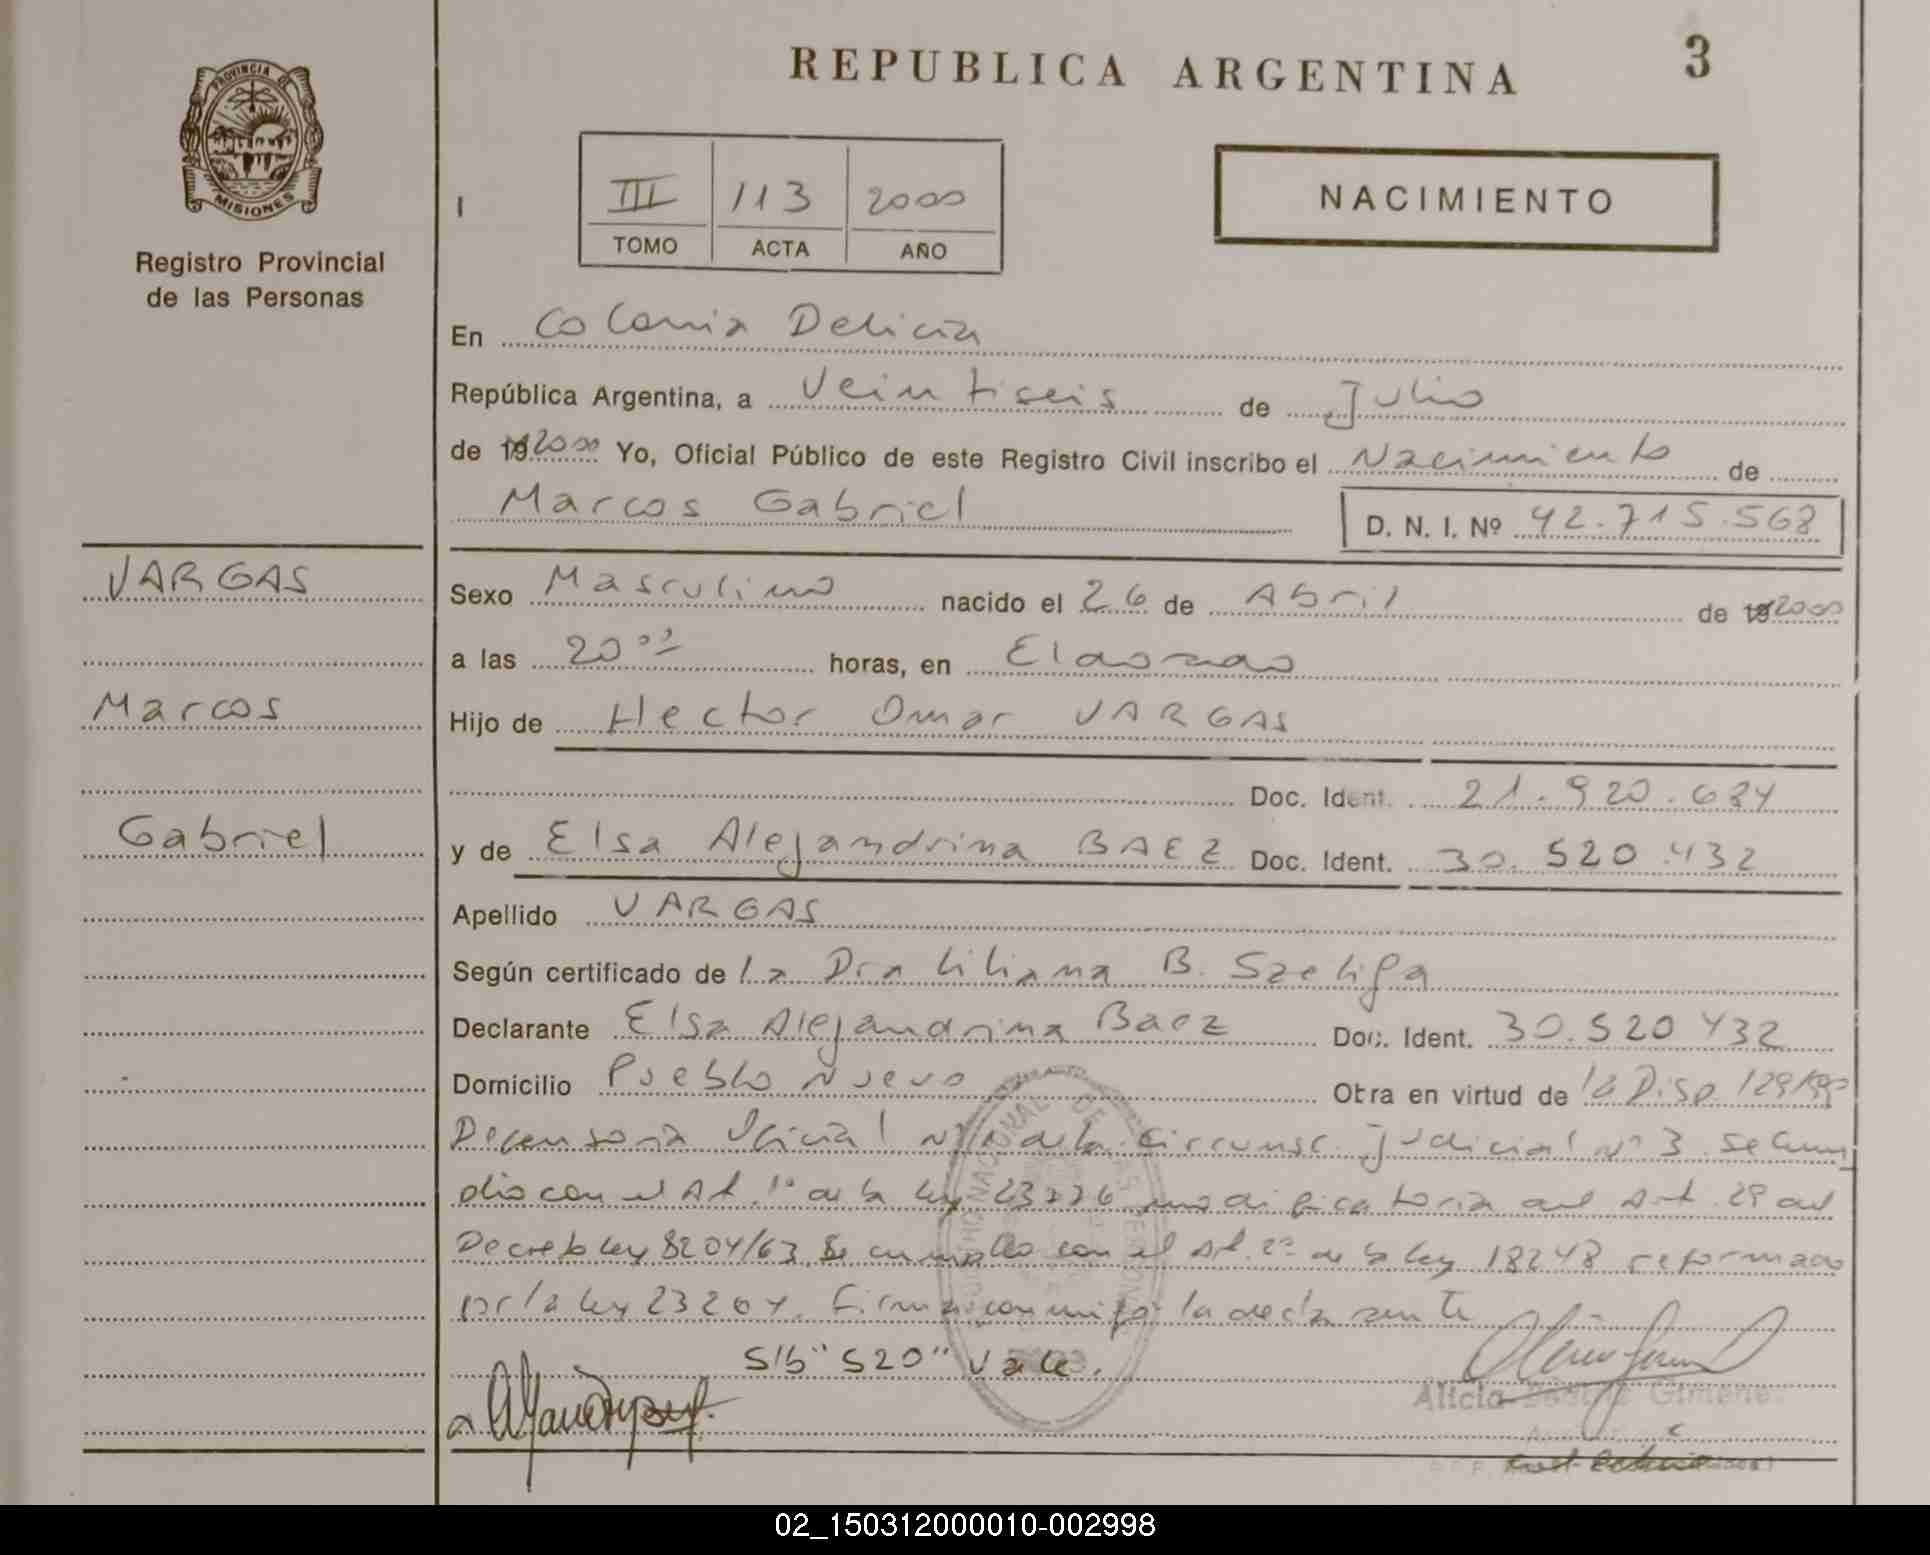 REPUBLICA ARGENTINA
3
PROVINCIA D
MISIONES
Registro Provincial
de las Personas
III 113 2000
TOMO ACTA AÑO
NACIMIENTO
En Colonia Delicia
República Argentina, a Veintiseis de Julio
de 19 2000 Yo, Oficial Público de este Registro Civil inscribo el Nacimiento de
Marcos Gabriel D. N. I. Nº 42.715.568
VARGAS
Marcos
Gabriel
Sexo Masculino nacido el 26 de Abril de 19 2000
a las 20 horas, en Eldorado
Hijo de Hector Omar VARGAS
Doc. Ident. 21.920.684
y de Elsa Alejandrina BAEZ Doc. Ident. 30.520.432
Apellido VARGAS
Según certificado de la Dra Liliana B. Szeliga
Declarante Elsa Alejandrina Baez Doc. Ident. 30.520 432
Domicilio Pueblo Nuevo Otra en virtud de la Disp 129/99
Defensoria Oficial Nº 1 de la Circunsc. judicial Nº 3. Se cum
plio con el Art. 1º de la ley modificatoria del Art. 29 del
Decreto ley 8204/63. Se cumplio con el Art. 2º de la ley 18248 reformado
por la ley 23264. Firma conmigo la declarante
S/b "520" Vale.
Alicia Gimenez
02_150312000010-002998